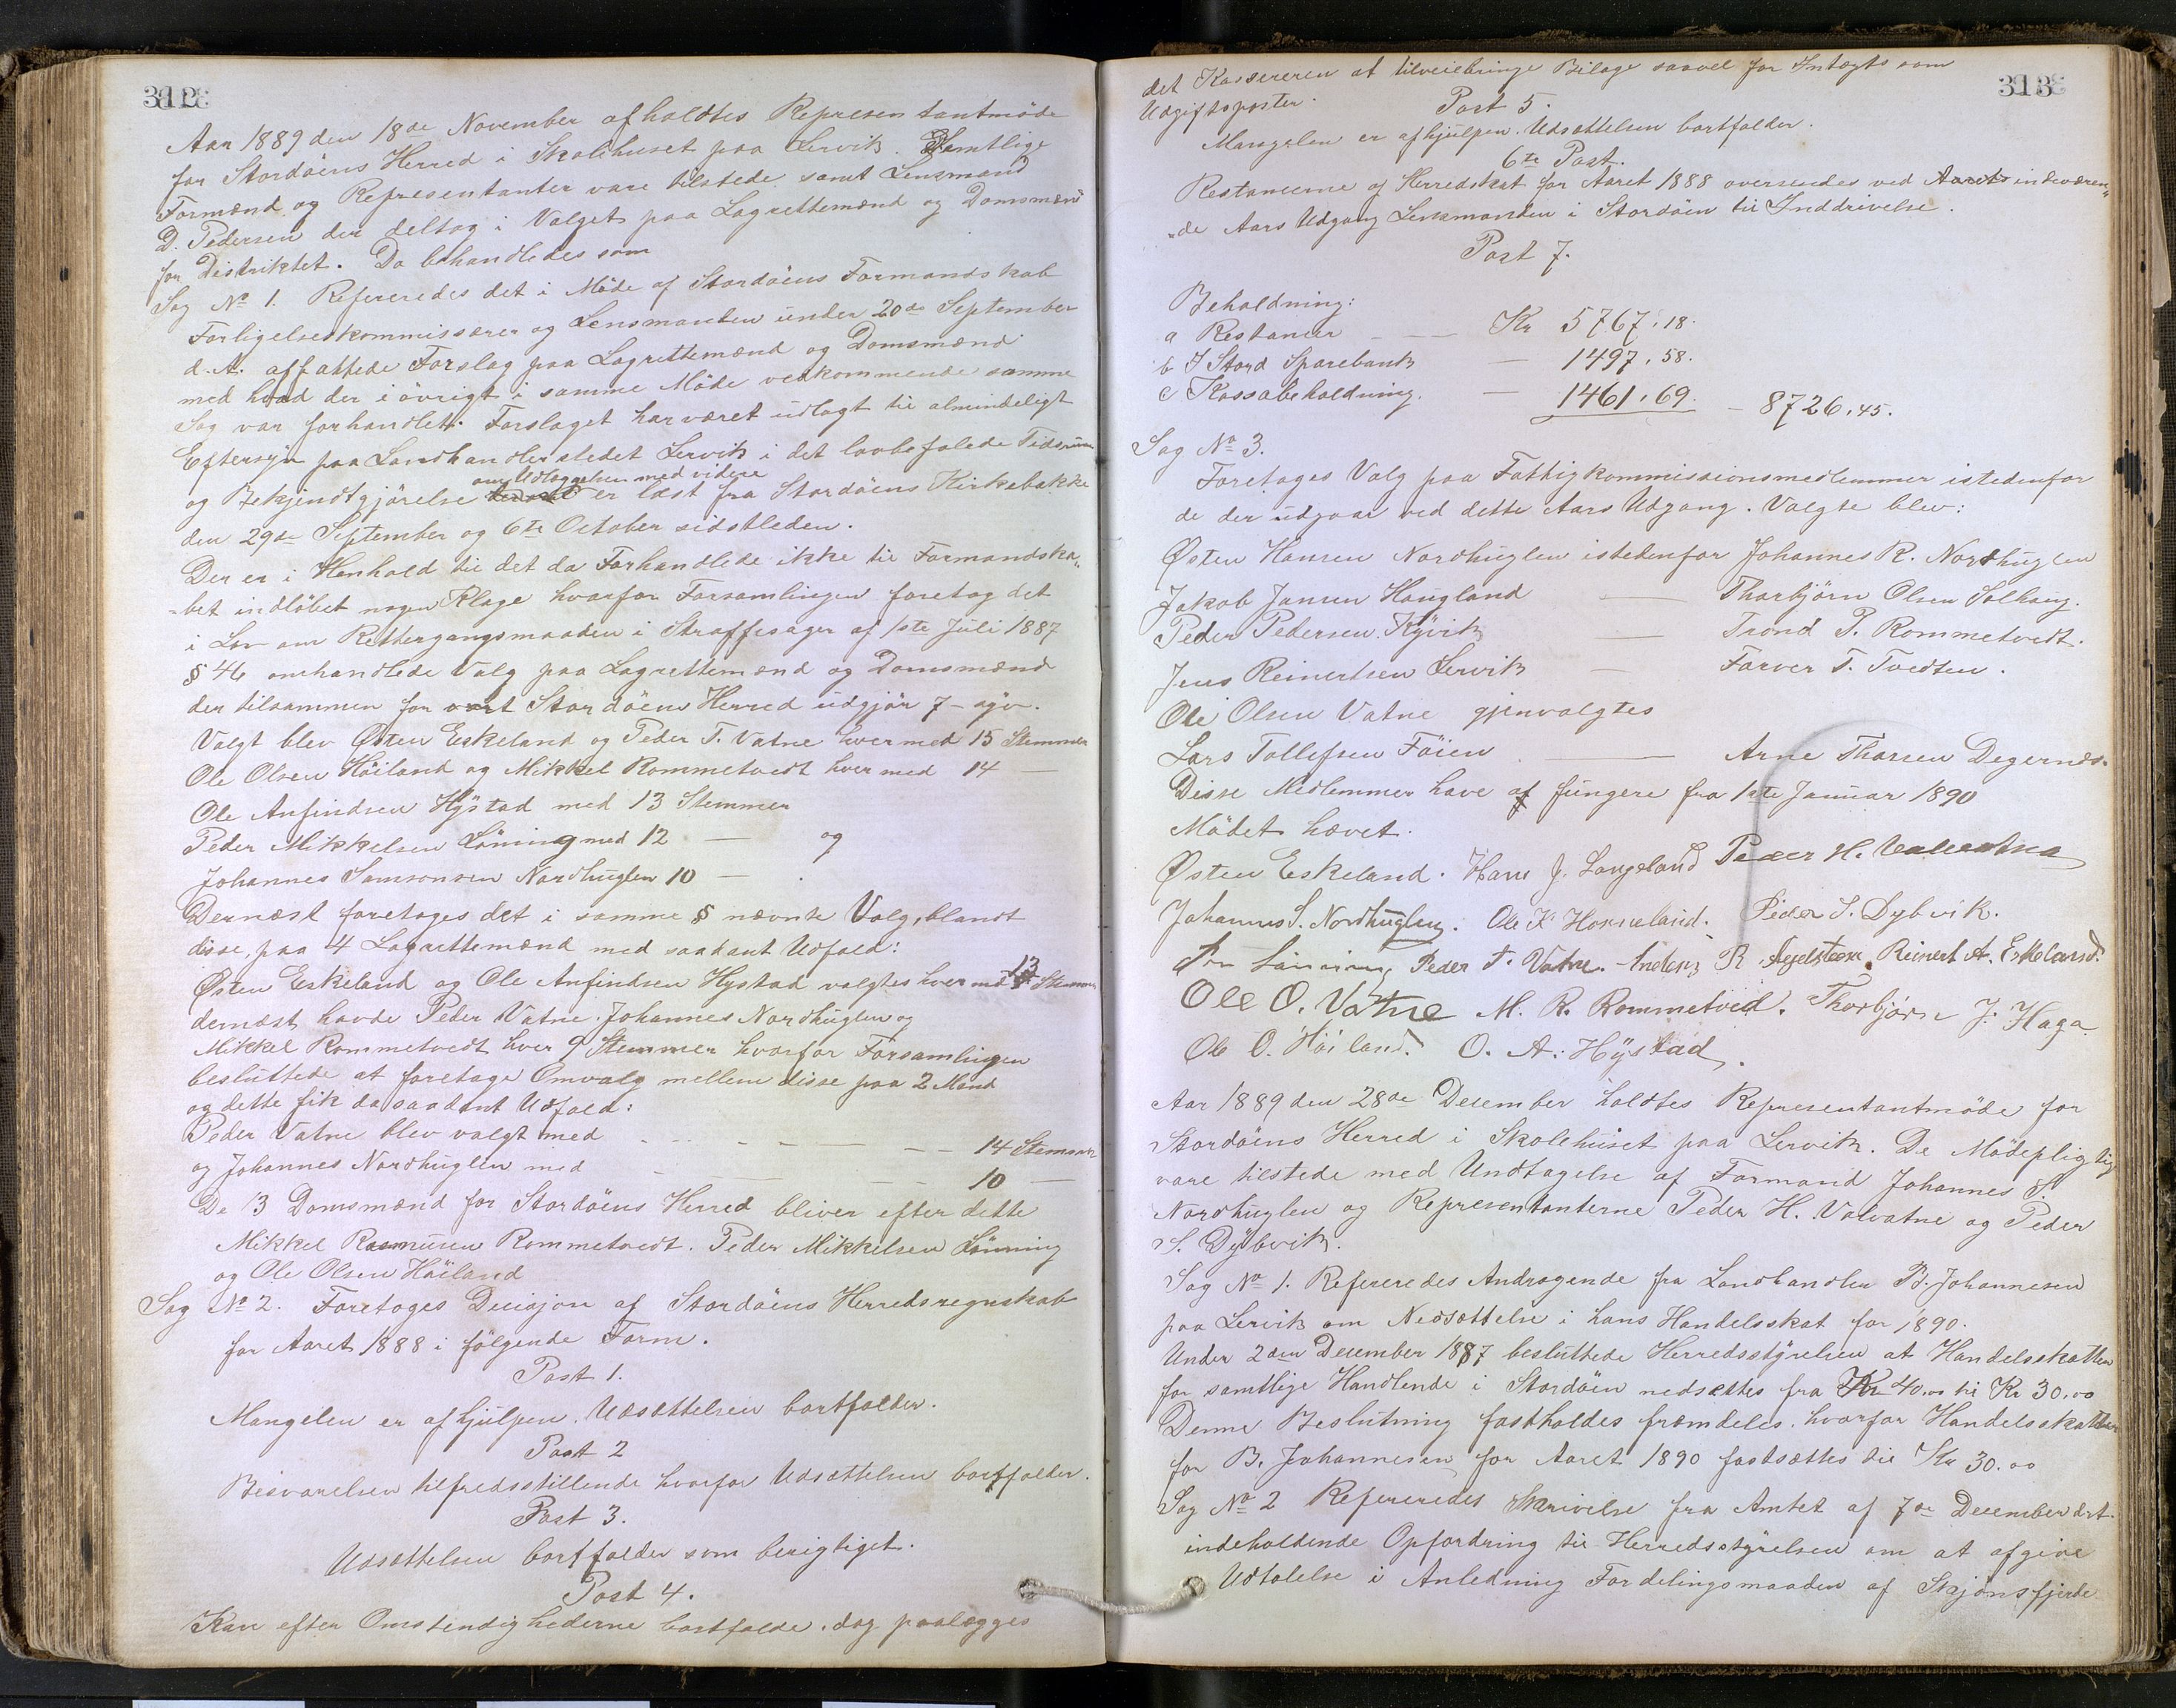 312
Aar 1889 den 18de November afholdtes Representantmöde
for Stordöens Herred i Skolehuset paa Lervik. Samtlige
Formænd og Representanter vare tilstede samt Lensmand
D. Pedersen der deltog i Valget paa Lagrettemænd og Domsmænd
for Distriktet. Da behandledes som
Sag No 1. Refereredes det i Möde af Stordöens Formandskab
Forligelseskommissærer og Lensmanden under 20de September
d. A. affattede Forslag paa Lagrettemænd og Domsmænd
med hvad der i övrigt i samme Möde vedkommende samme
Sag var forhandlet. Forslaget har været udlagt til almindeligt
Eftersyn paa Landhandlerstedet Lervik i det lovbefalede Tidsrum
om Udlæggelsen med videre
og Bekjendtgjörelse er læst fra Stordöens Kirkebakke
den 29de September og 6te October sidstleden.
Der er i Henhold til det da Forhandlede ikke til Formandska„
„bet indlöbet nogen Klage hvorfor Forsamlingen foretog det
i Lov om Rettergangsmaaden i Straffesager af 1ste Juli 1887
§ 46 omhandlede Valg paa Lagrettemænd og Domsmænd
der tilsammen for vort Stordöens Herred udgjör 7 - syv.
Valgt blev Østen Eskeland og Peder T. Vatne hver med 15 Stemmer
Ole Olsen Höiland og Mikkel Rommetvedt hver med 14 —
Ole Anfindsen Hÿstad med 13 Stemmer
Peder Mikkelsen Löning med 12 — og
Johannes Samsonsen Nordhuglen 10 — .
Dernæst foretoges det i samme § nævnte Valg, blandt
disse, paa 4 Lagrettemænd med saadant Udfald:
Østen Eskeland og Ole Anfindsen Hystad valgtes hver med 13 Stemmer
dernæst havde Peder Vatne. Johannes Nordhuglen og
Mikkel Rommetvedt hver 9 Stemmer hvorfor Forsamlingen
besluttede at foretage Omvalg mellem disse paa 2 Mand
og dette fik da saadant Udfald:
Peder Vatne blev valgt med — — 14 Stemmer
og Johannes Nordhuglen med — — 10 —
De 3 Domsmænd for Stordöens Herred bliver efter dette
Mikkel Rasmusen Rommetvedt. Peder Mikkelsen Lönning
og Ole Olsen Höiland
Sag No 2. Foretoges Decisjon af Stordöens Herredsregnskab
for Aaret 1888 i fölgende Form.
Post 1.
Mangelen er afhjulpen. Udsættelsen bortfalder.
Post 2
Besvarelsen tilfredsstillende hvorfor Udsættelsen bortfalder.
Post 3.
Udsættelsen bortfalder som berigtiget.
Post 4.
Kan efter Omstendighederne bortfalde, dog paalægges
313
det Kassereren at tilveiebringe Bilage saavel for Intægts som
Udgiftsposter.
Post 5.
Mangelen er afhjulpen. Udsættelsen bortfalder.
6te Post.
Restancerne af Herredskat for Aaret 1888 oversendes ved Aarets indeværen„
„de Aars Udgang Lensmanden i Stordöen til Inddrivelse.
Post 7.
Beholdning:
a Restancer — Kr 5767,18.
b I Stord Sparebank — 1497,58.
c Kassabeholdning. — 1461,69. — 8726,45.
Sag No 3.
Foretoges Valg paa Fattigkommissionsmedlemmer istedenfor
de der udgaar ved dette Aars Udgang. Valgte blev:
Østen Hansen Nordhuglen istedenfor Johannes R. Nordhuglen
Jakob Jansen Hougland — Thorbjörn Olsen Solhaug.
Peder Pedersen Kÿvik — Trond P. Rommetvedt.
Jens Reinertsen Lervik — Farver T. Tvedten.
Ole Olsen Vatne gjenvalgtes
Lars Tollefsen Föien — Arne Thorsen Degernæs.
Disse Medlemmer have at fungere fra 1ste Januar 1890
Mödet hævet.
Østen Eskeland. Hans J. Langeland Peder H. Valvatna
Johannes S. Nordhuglen. Ole K Horneland. Peder S. Dybvik.
Lönning Peder T. Vatne. Anders R Agdesteen. Reinert A. Eskeland.
Ole O. Vatne M. R. Rommetved. Thorbjörn J. Haga
Ole O. Höiland. O. A. Hÿstad.
Aar 1889 den 28de December holdtes Representantmöde for
Stordöens Herred i Skolehuset paa Lervik. De Mödepligtige
vare tilstede med Undtagelse af Formand Johannes S.
Nordhuglen og Representanterne Peder H. Valvatne og Peder
S. Dÿbvik.
Sag No 1. Refereredes Andragende fra Landhandler B. Johannesen
paa Lervik om Nedsættelse i hans Handelsskat for 1890.
Under 2den December 1887 besluttede Herredsstÿrelsen at Handelsskatten
for samtlige Handlende i Stordöen nedsættes fra Kr 40.00 til Kr 30.00
Denne Beslutning fastholdes fremdeles, hvorfor Handelsskatten
for B. Johannesen for Aaret 1890 fastsættes til Kr 30.00
Sag No 2 Refereredes Skrivelse fra Amtet af 7de December d.A.
indeholdende Opfordring til Herredsstÿrelsen om at afgive
Udtalelse i Anledning Fordelingsmaaden af Skjönsfjerde